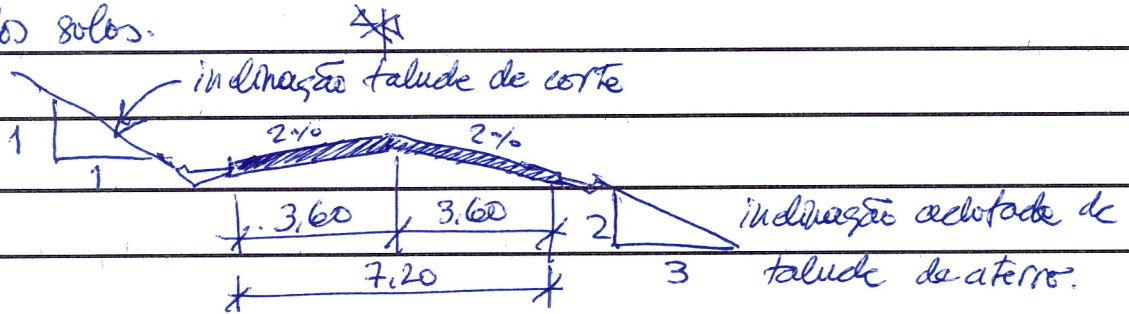 dos solos.
inclinação talude de corte
1
1
2% 2%
3,60 3,60
7,20
2
3
inclinação adotada de
talude de aterro.